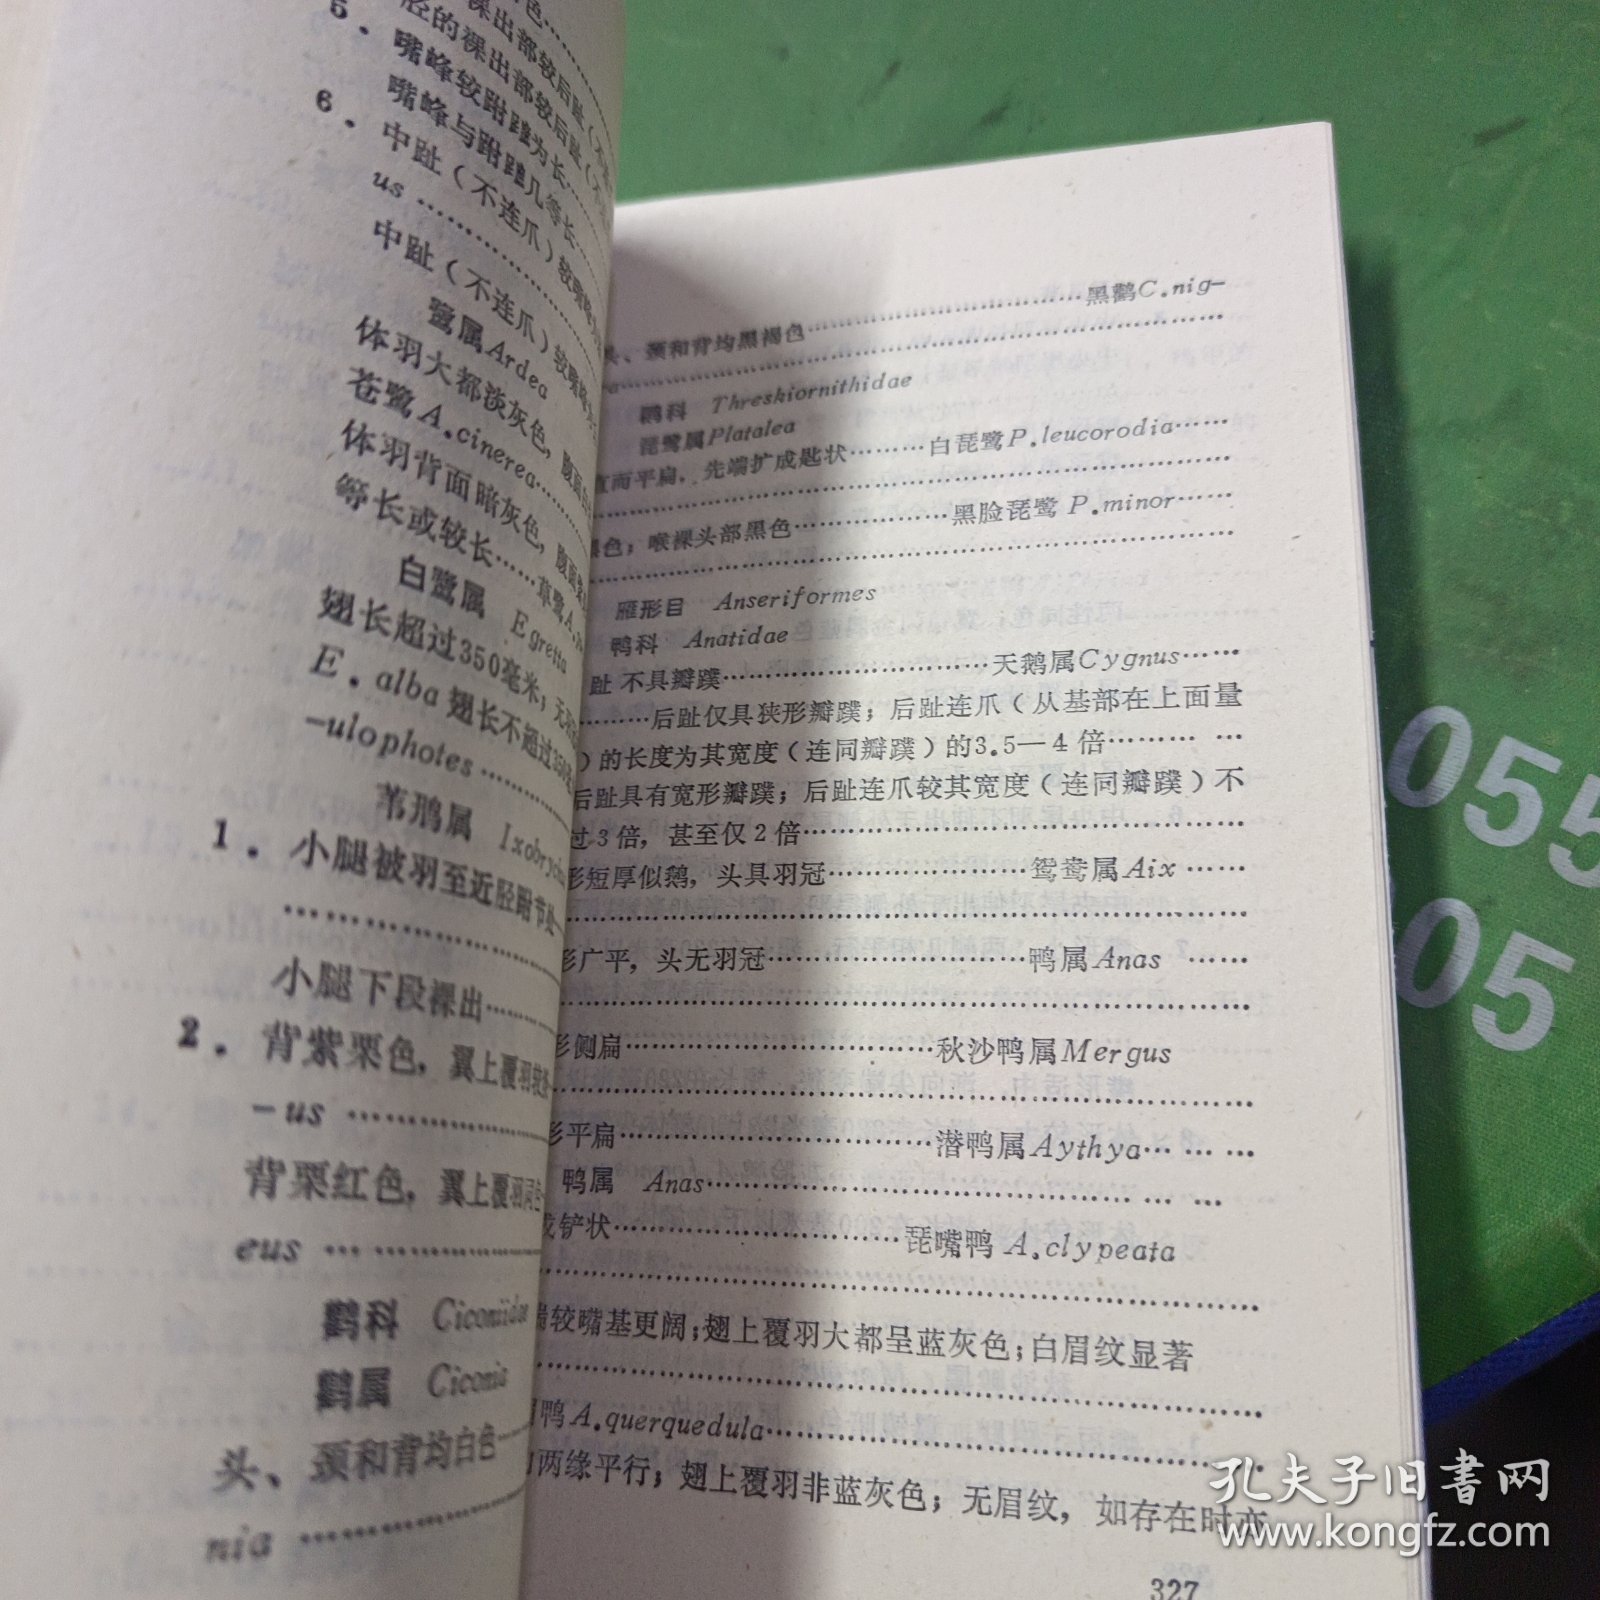 色……
裸出部较后趾(不
胫的裸出部较后趾(不
5. 嘴峰较跗蹠为长……
嘴峰与跗蹠几等长……
6. 中趾(不连爪)较嘴峰为
us ……
中趾(不连爪)较嘴峰为
鹭属Ardea
体羽大都淡灰色，腹面白
苍鹭A.cinerea……
体羽背面暗灰色，腹面
等长或较长……草鹭A.
白鹭属 Egretta
翅长超过350毫米，无
E.alba翅长不超过350毫
-ulophotes……
苇鳽属 Ixobrychu
1. 小腿被羽至近胫跗节处
……
小腿下段裸出……
2. 背紫栗色，翼上覆羽较
-us ……
背栗红色，翼上覆羽同
eus ……
鹳科 Ciconiidae
鹳属 Ciconia
头、颈和背均白色……
nia ……
、颈和背均黑褐色……黑鹳C.nig-
……
鹮科 Threskiornithidae
琵鹭属Platalea
直而平扁，先端扩成匙状………白琵鹭P.leucorodia……
……
黑色；喉裸头部黑色……黑脸琵鹭 P.minor……
……
雁形目 Anseriformes
鸭科 Anatidae
趾不具瓣蹼……天鹅属Cygnus……
……后趾仅具狭形瓣蹼；后趾连爪(从基部在上面量
)的长度为其宽度(连同瓣蹼)的3.5—4倍……
后趾具有宽形瓣蹼；后趾连爪较其宽度(连同瓣蹼)不
过3倍，甚至仅2倍……
形短厚似鹅，头具羽冠……鸳鸯属Aix……
……
形广平，头无羽冠……鸭属Anas ……
……
形侧扁……秋沙鸭属Mergus
……
形平扁……潜鸭属Aythya……
鸭属 Anas……
成铲状……琵嘴鸭 A.clypeata
……
端较嘴基更阔；翅上覆羽大都呈蓝灰色；白眉纹显著
……
眉鸭A.querquedula……
两缘平行；翅上覆羽非蓝灰色；无眉纹，如存在时亦
327
055
05
孔夫子旧书网
www.kongfz.com